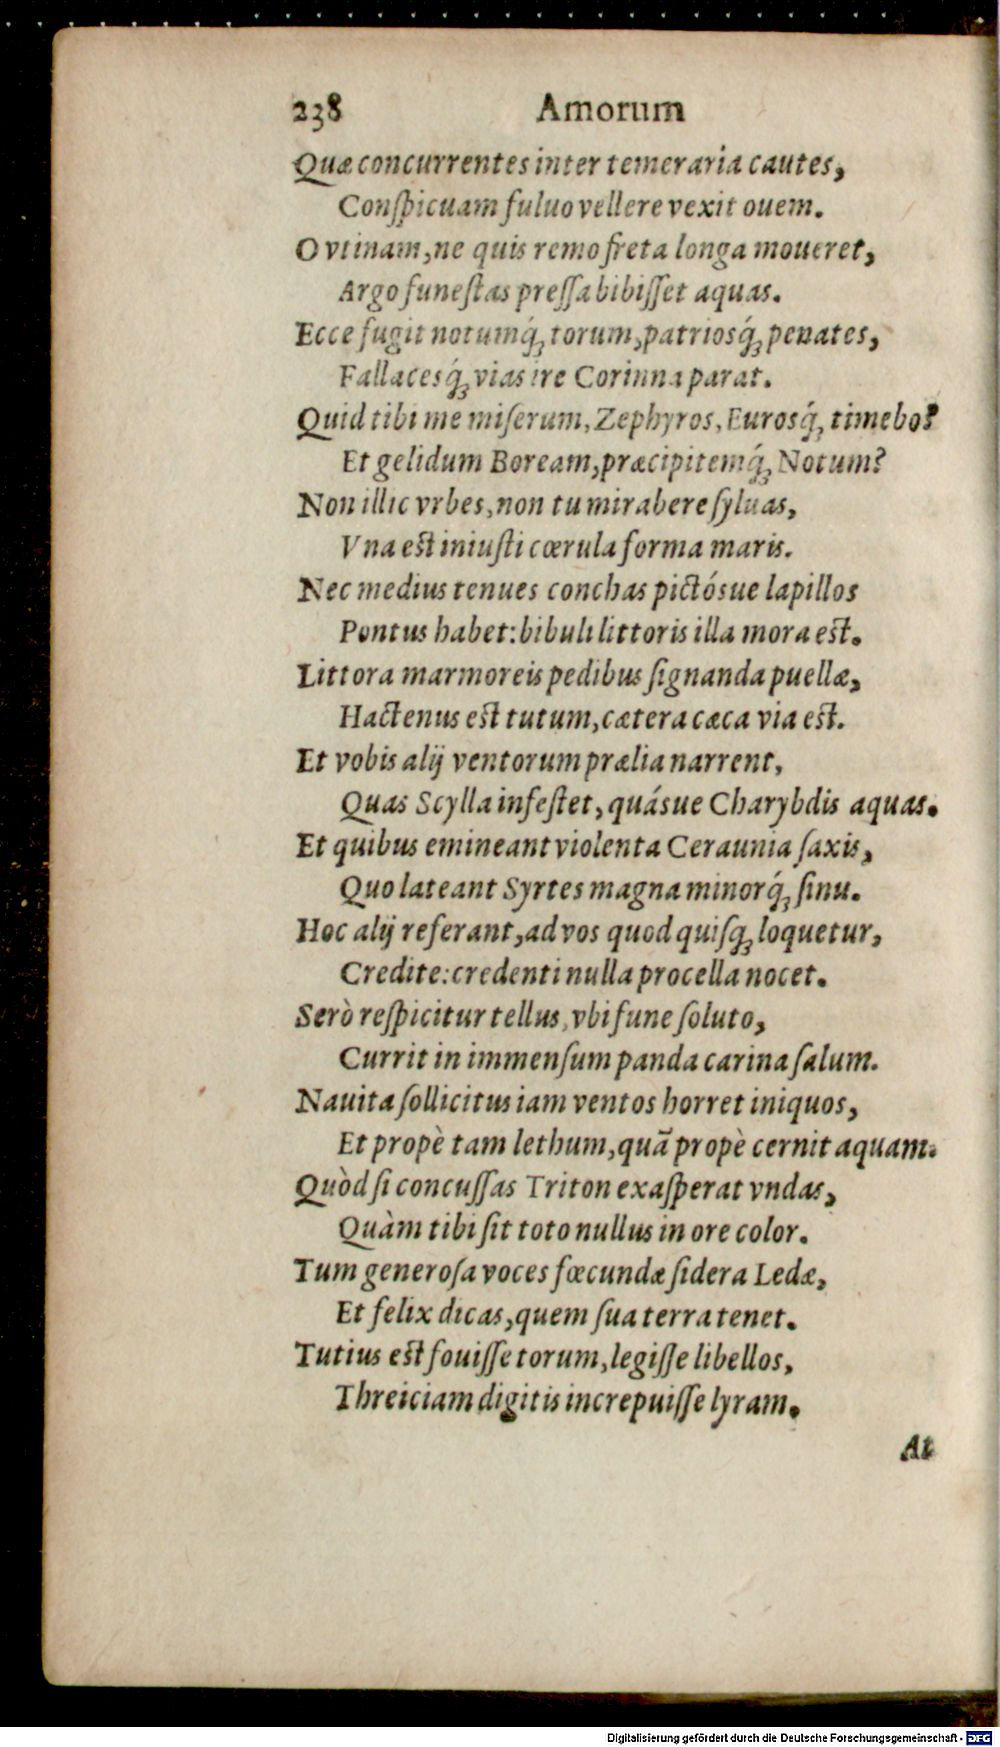 238 Amorum
Quæ concurrentes inter temeraria cautes,
Conſpicuam fuluo vellere vexit ouem.
O vtinam, ne quis remo freta longa moueret,
Argo funeſtas preſſa bibiſſet aquas.
Ecce fugit notumq́; torum, patriosq́; penates,
Fallacesq́; vias ire Corinna parat.
Quid tibi me miſerum, Zephyros, Eurosq́; timebo?
Et gelidum Boream, præcipitemq́; Notum?
Non illic vrbes, non tu mirabere ſyluas,
Vna eſt iniuſti cœrula forma maris.
Nec medius tenues conchas pictósue lapillos
Pontus habet: bibuli littoris illa mora eſt.
Littora marmoreis pedibus ſignanda puellæ,
Hactenus eſt tutum, cætera cæca via eſt.
Et vobis alij ventorum prælia narrent,
Quas Scylla infeſtet, quásue Charybdis aquas.
Et quibus emineant violenta Ceraunia ſaxis,
Quo lateant Syrtes magna minorq́; ſinu.
Hoc alij referant, ad vos quod quiſq; loquetur,
Credite: credenti nulla procella nocet.
Serò reſpicitur tellus, vbi fune ſoluto,
Currit in immenſum panda carina ſalum.
Nauita ſollicitus iam ventos horret iniquos,
Et propè tam lethum, quã propè cernit aquam.
Quòd ſi concuſſas Triton exaſperat vndas,
Quàm tibi ſit toto nullus in ore color.
Tum generoſa voces fœcundæ ſidera Ledæ,
Et felix dicas, quem ſua terra tenet.
Tutius eſt fouiſſe torum, legiſſe libellos,
Threiciam digitis increpuiſſe lyram.
At
Digitalisierung gefördert durch die Deutsche Forschungsgemeinschaft - DFG